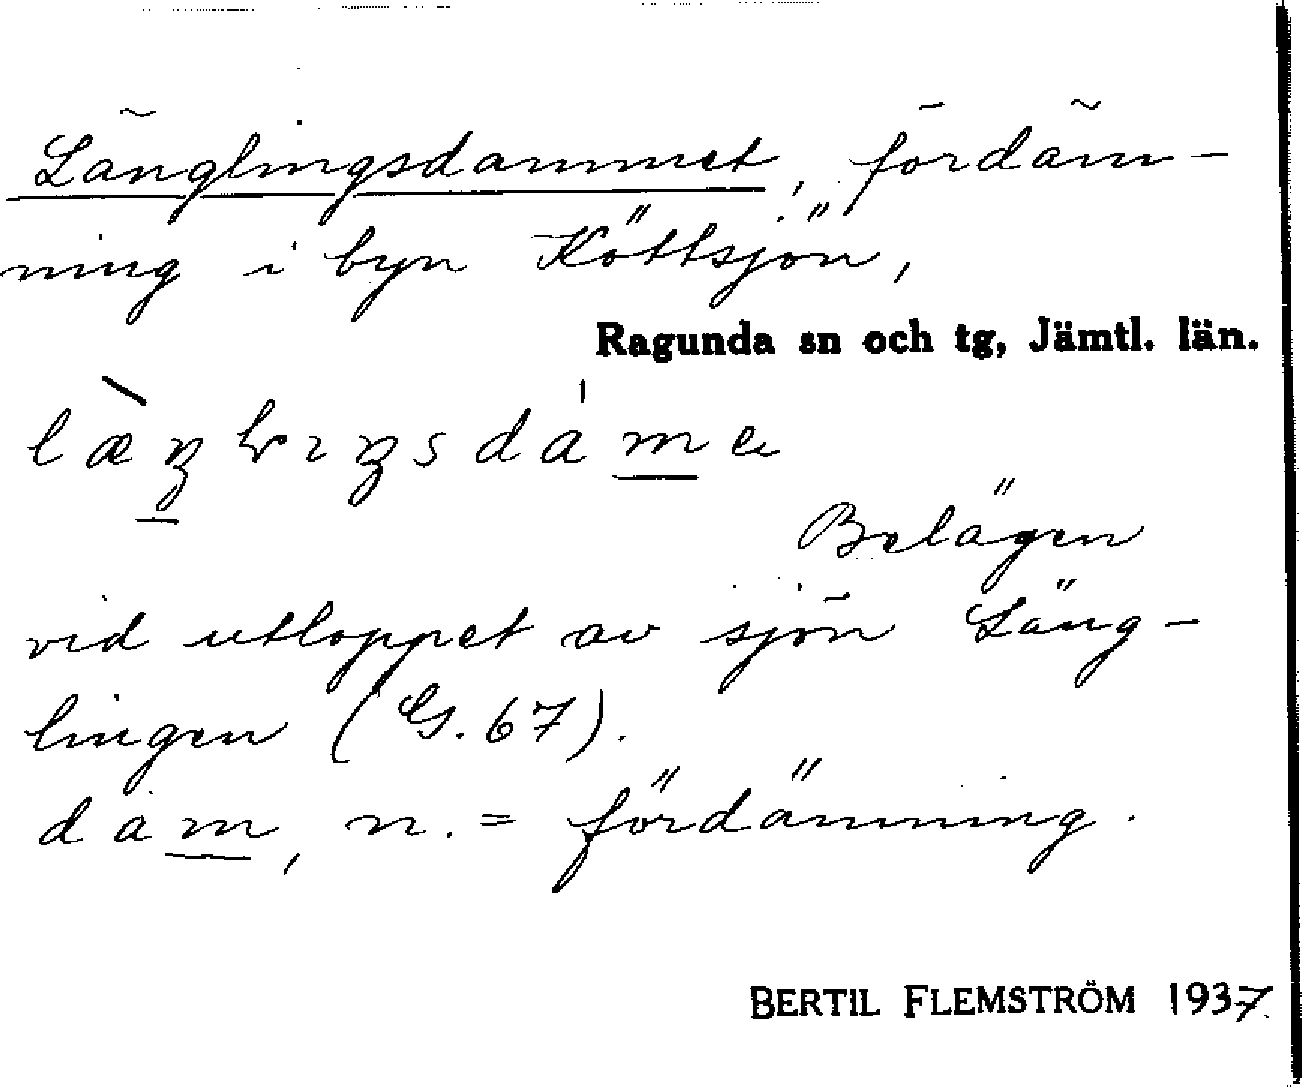 Länglingsdammet, fördäm-
ning i byn Köttsjön,
Ragunda sn och tg, Jämtl. län.
Belägen
vid utloppet av sjön Läng-
lingen (G. 67).
dam, n. = fördämning.
BERTIL FLEMSTRÖM 1937